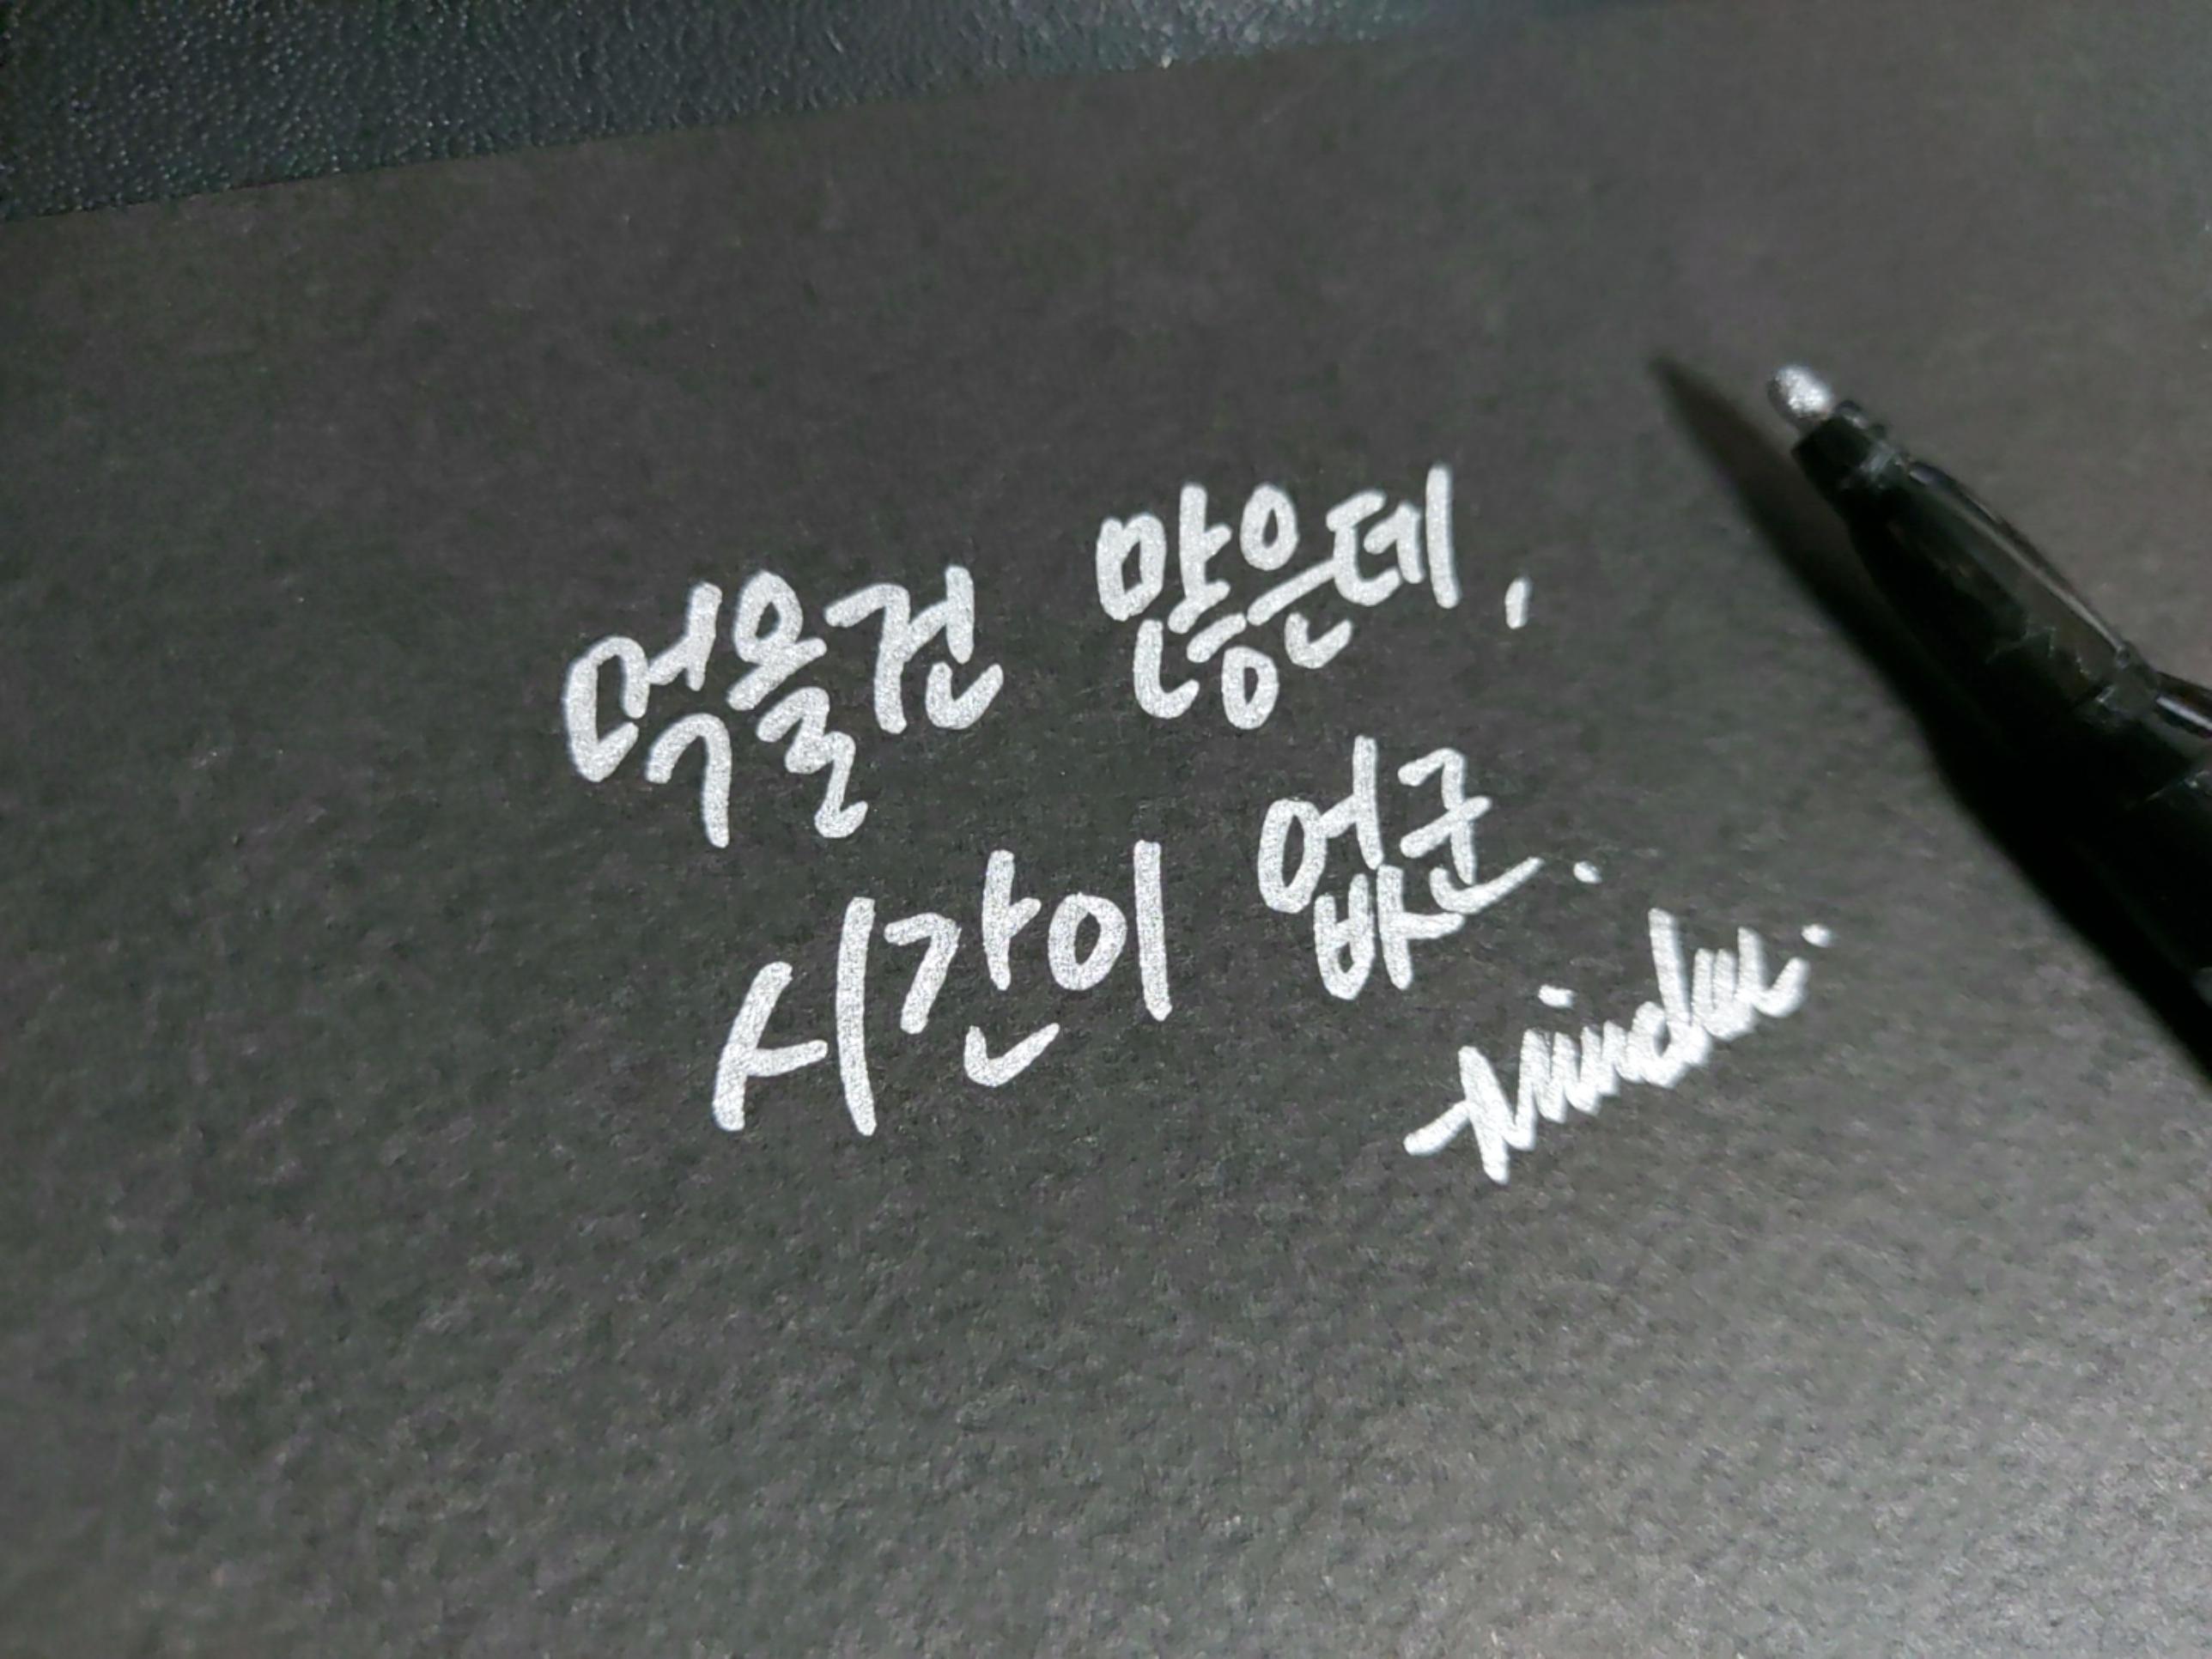 먹을건 많은데,
시간이 없군.